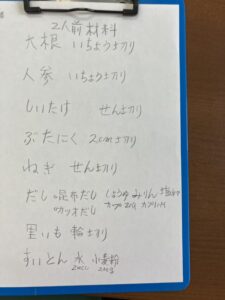 2人前材料
大根 いちょう切り
人参 いちょう切り
しいたけ せん切り
ぶたにく 2cm切り
ねぎ せん切り
だし 昆布だし しょうゆ みりん
カツオだし カップ
里いも 輪切り
すいとん 水 小麦粉
200cc 200g